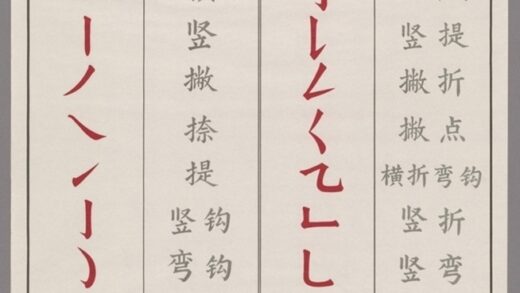 丨 竖 𠄌 竖提
丿 撇 𠃋 撇折
㇏ 捺 𡿨 撇点
㇀ 提 乙 横折弯钩
亅 竖钩 𠃊 竖折
㇁ 弯钩 ㇄ 竖弯